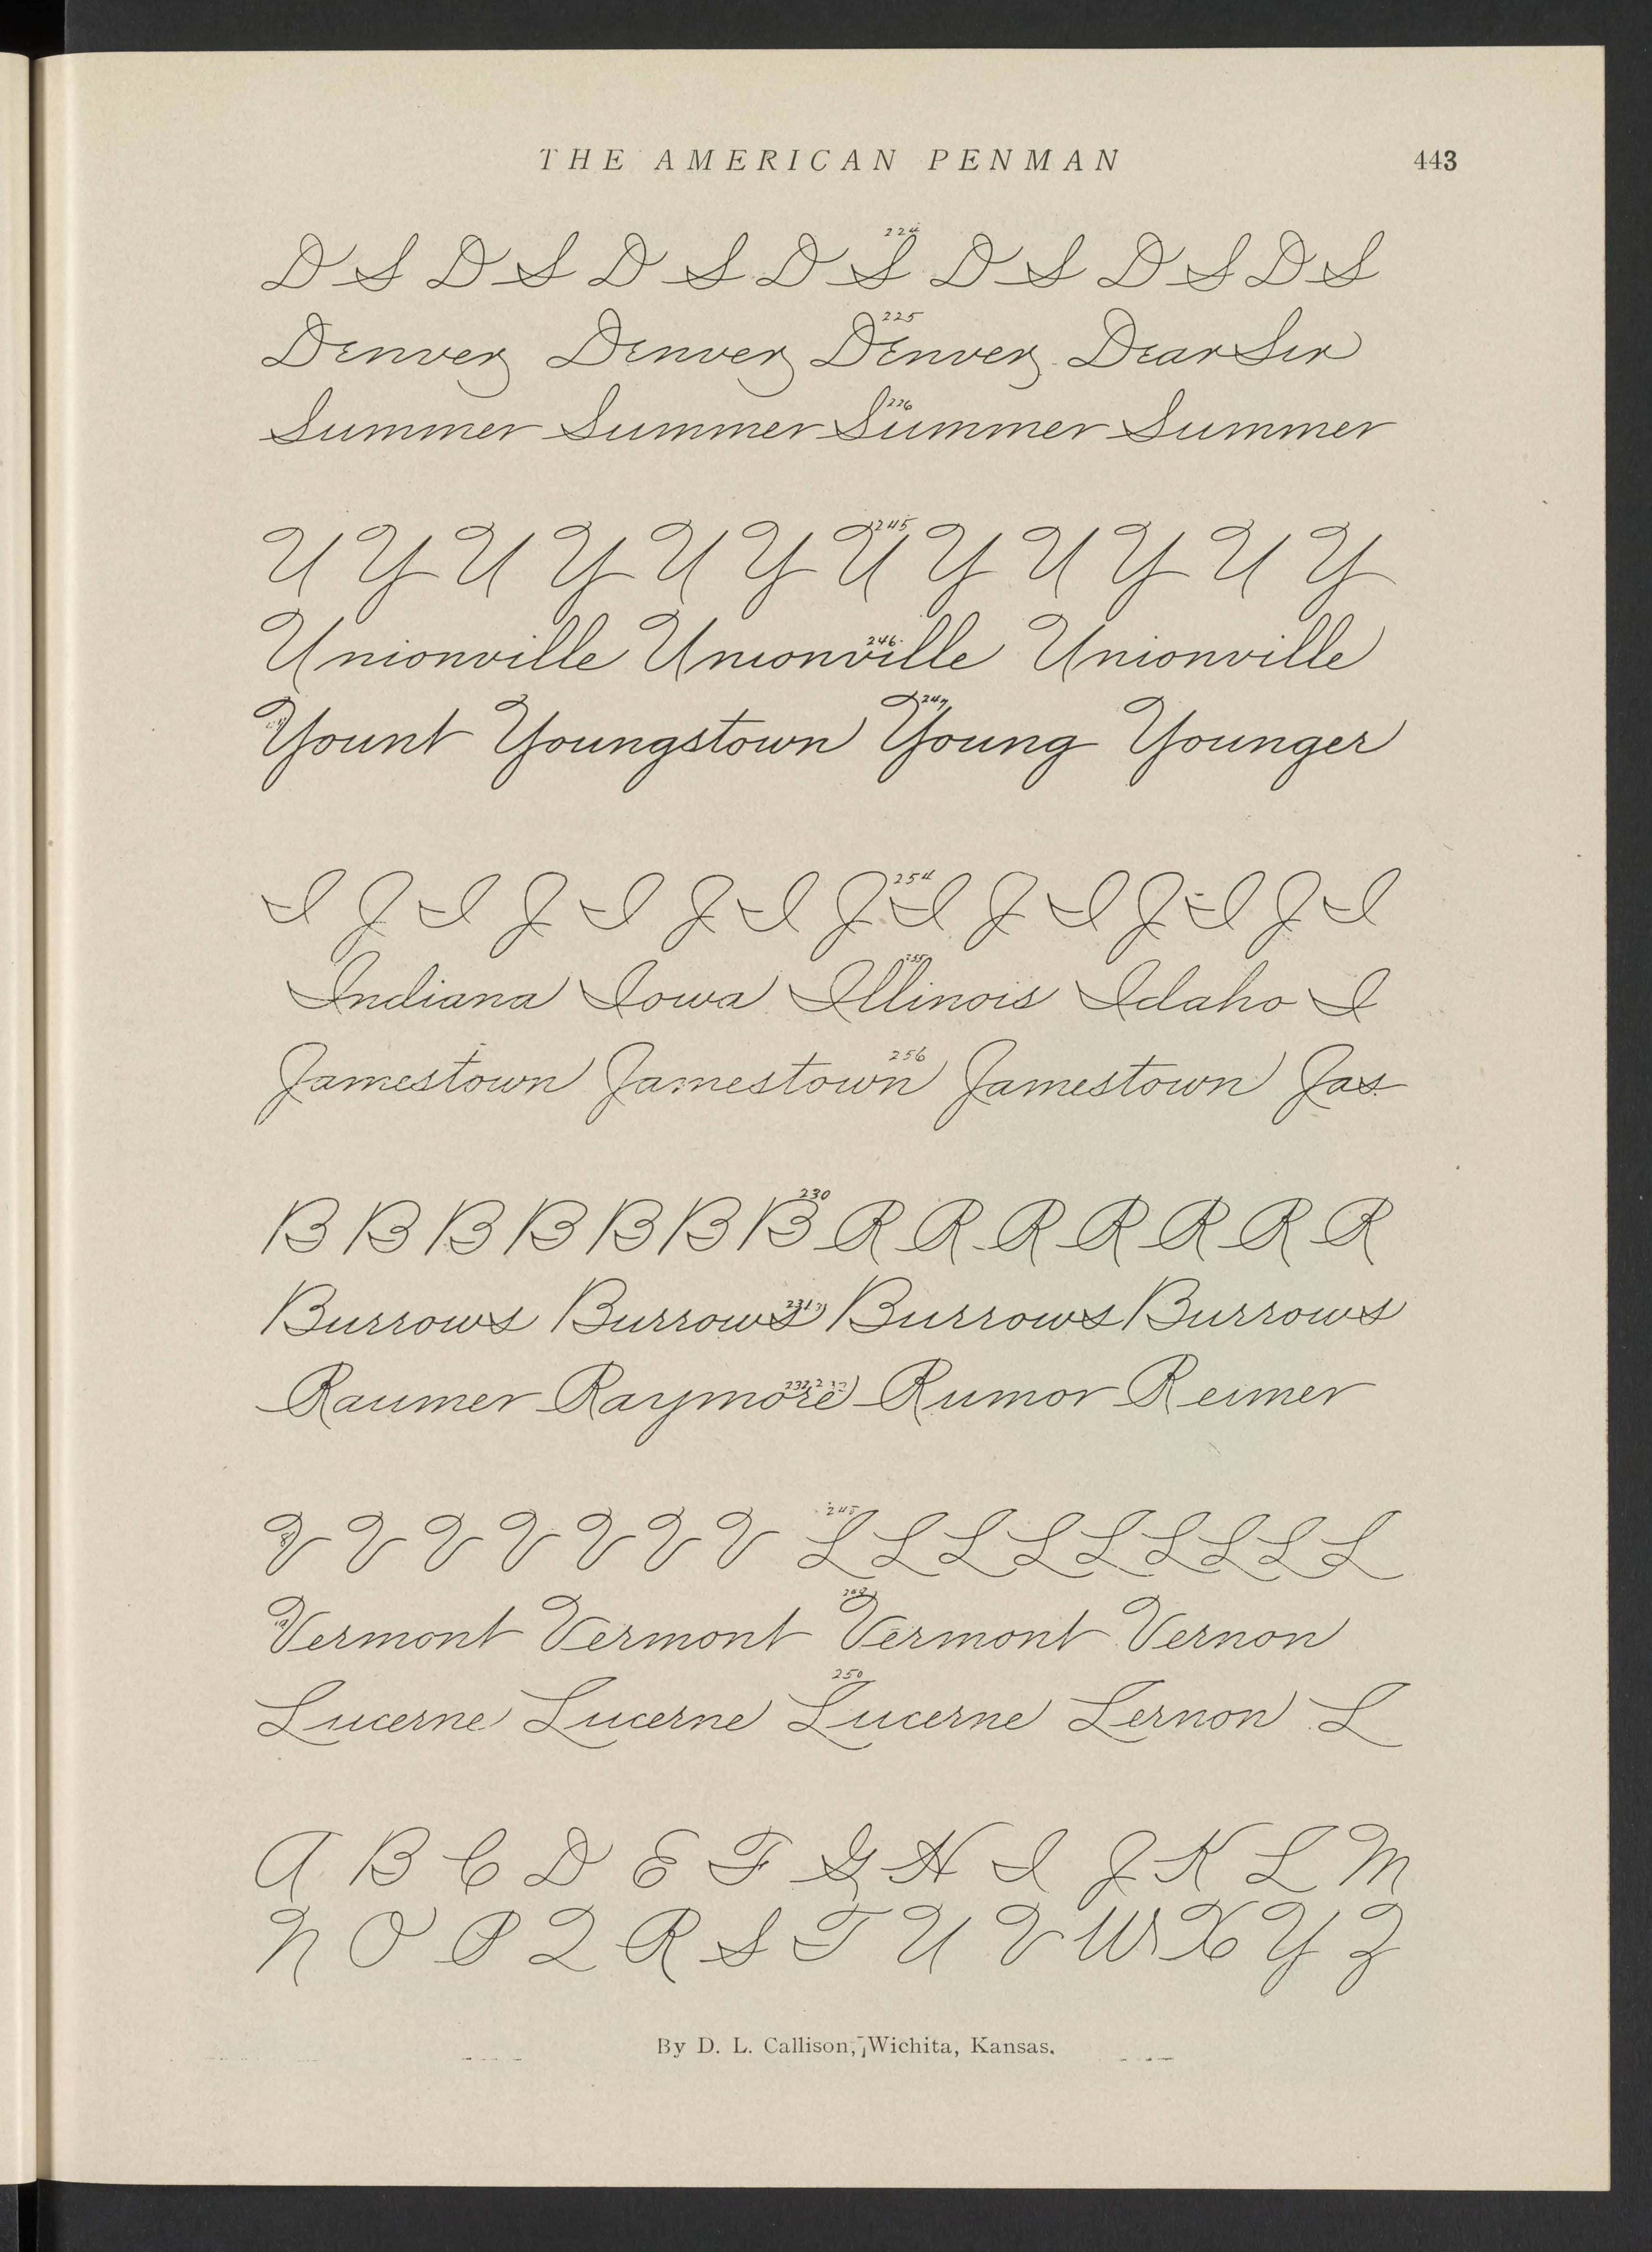 THE AMERICAN PENMAN 443
224
D S D S D S D S D S D S D S
225
Denver Denver Denver Dear Sir
226
Summer Summer Summer Summer
245
U Y U Y U Y U Y U Y U Y
246
Unionville Unionville Unionville
247
Yount Youngstown Young Younger
254
I J I J I J I J I J I J I J I
255
Indiana Iowa Illinois Idaho I
256
Jamestown Jamestown Jamestown Jas.
230
B B B B B B B R R R R R R R
231
Burrows Burrows Burrows Burrows
232
Raumer Raymore Rumor Reimer
V V V V V V V L L L L L L L L L
Vermont Vermont Vermont Vernon
250
Lucerne Lucerne Lucerne Lernon L
A B C D E F G H I J K L M
N O P Q R S T U V W X Y Z
By D. L. Callison, Wichita, Kansas.